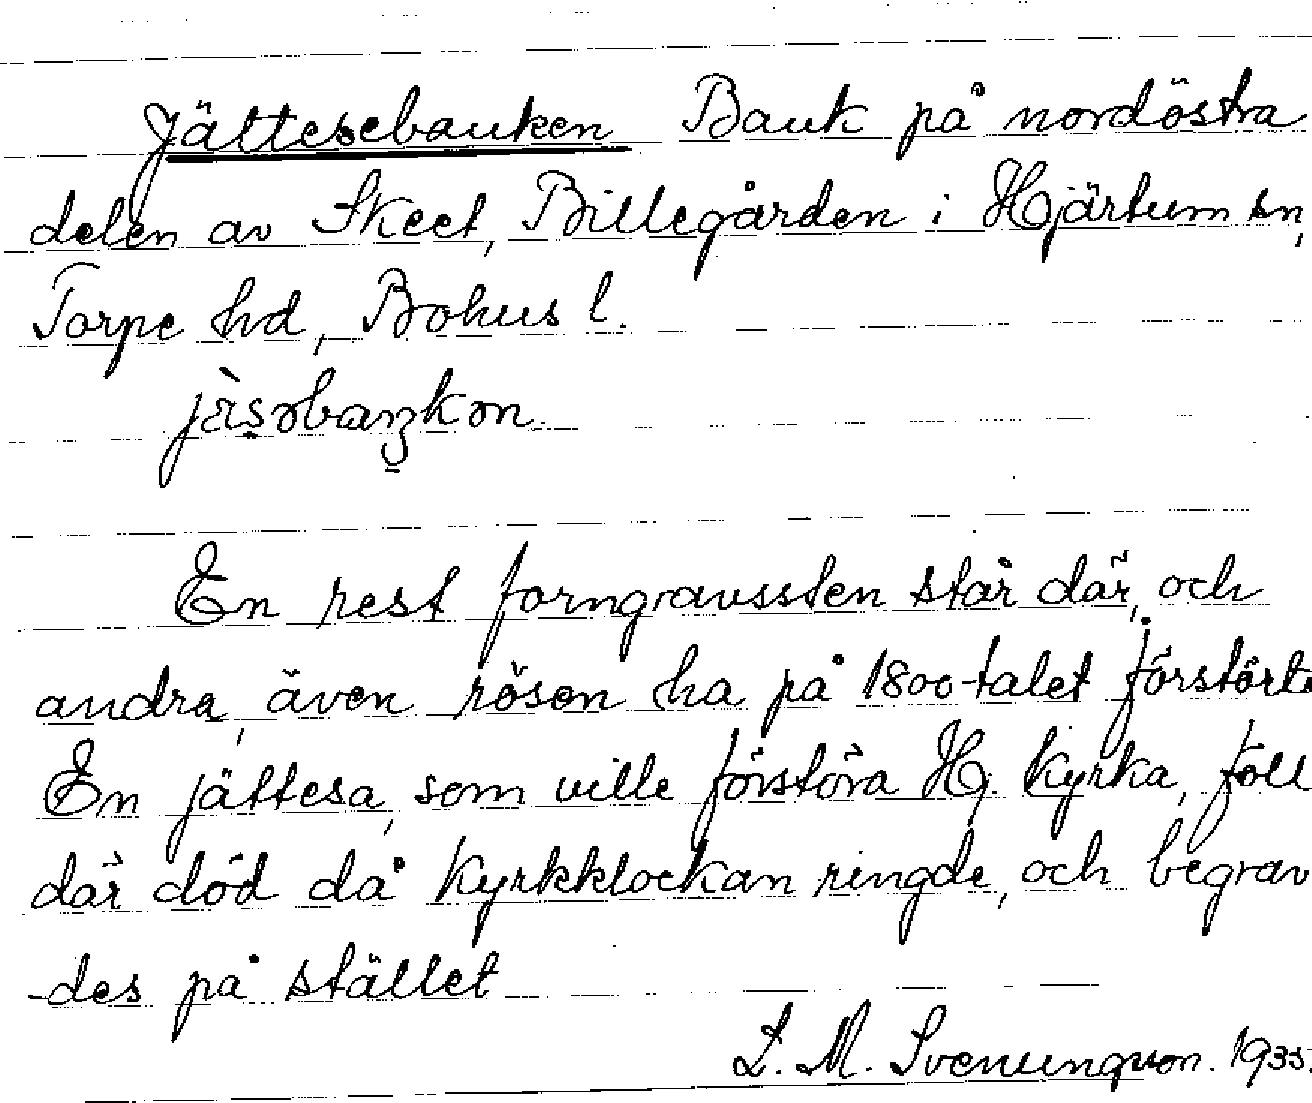 Jättesebauken Bauk på nordöstra
delen av Skeet, Billegården i Hjärtum sn,
Torpe hd, Bohus l.
En rest forngravssten står där, och
andra, även rösen ha på 1800-talet förstörts
En jättesa, som ville förstöra Hj. kyrka, föll
där död då kyrkklockan ringde, och begrav
-des på stället
L. M. Svenungsson. 1935.